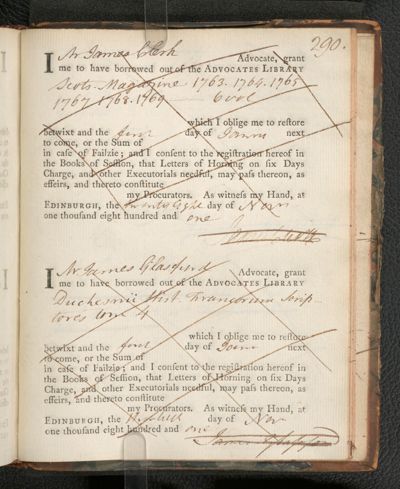 290.
I Mr James Clerk Advocate, grant
me to have borrowed out of the ADVOCATES LIBRARY
Scots Magazine 1763. 1764. 1765
1767 1768. 1769
which I oblige me to restore
betwixt and the first day of next
to come, or the Sum of
in case of Failzie; and I consent to the registration hereof in
the Books of Session, that Letters of Horning on six Days
Charge, and other Executorials needful, may pass thereon, as
effeirs, and thereto constitute
my Procurators. As witness my Hand, at
EDINBURGH, the day of Novr
one thousand eight hundred and one
I Mr James Glassford Advocate, grant
me to have borrowed out of the ADVOCATES LIBRARY
Duchesnii Hist. Francorum Scrip-
tores
which I oblige me to restore
betwixt and the first day of next
to come, or the Sum of
in case of Failzie; and I consent to the registration hereof in
the Books of Session, that Letters of Horning on six Days
Charge, and other Executorials needful, may pass thereon, as
effeirs, and thereto constitute
my Procurators. As witness my Hand, at
EDINBURGH, the day of Nov
one thousand eight hundred and one
James Glassford